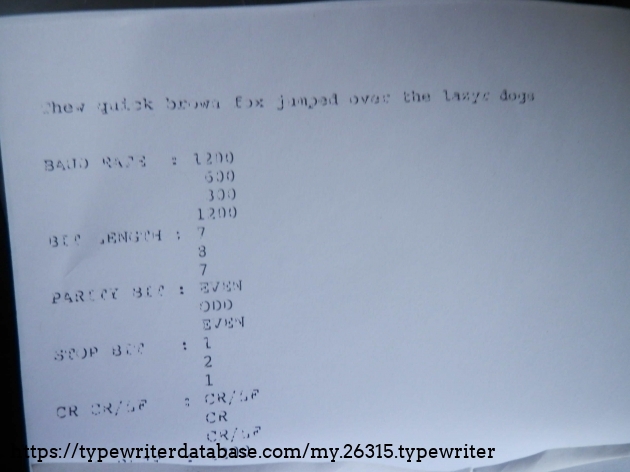 Thew quick brown fox jumped over the lazyr dogs
BAUD RATE : 1200
600
300
1200
BIT LENGTH : 7
8
7
PARITY BIT : EVEN
ODD
EVEN
STOP BIT : 1
2
1
CR CR/LF : CR/LF
CR
CR/LF
https://typewriterdatabase.com/my.26315.typewriter